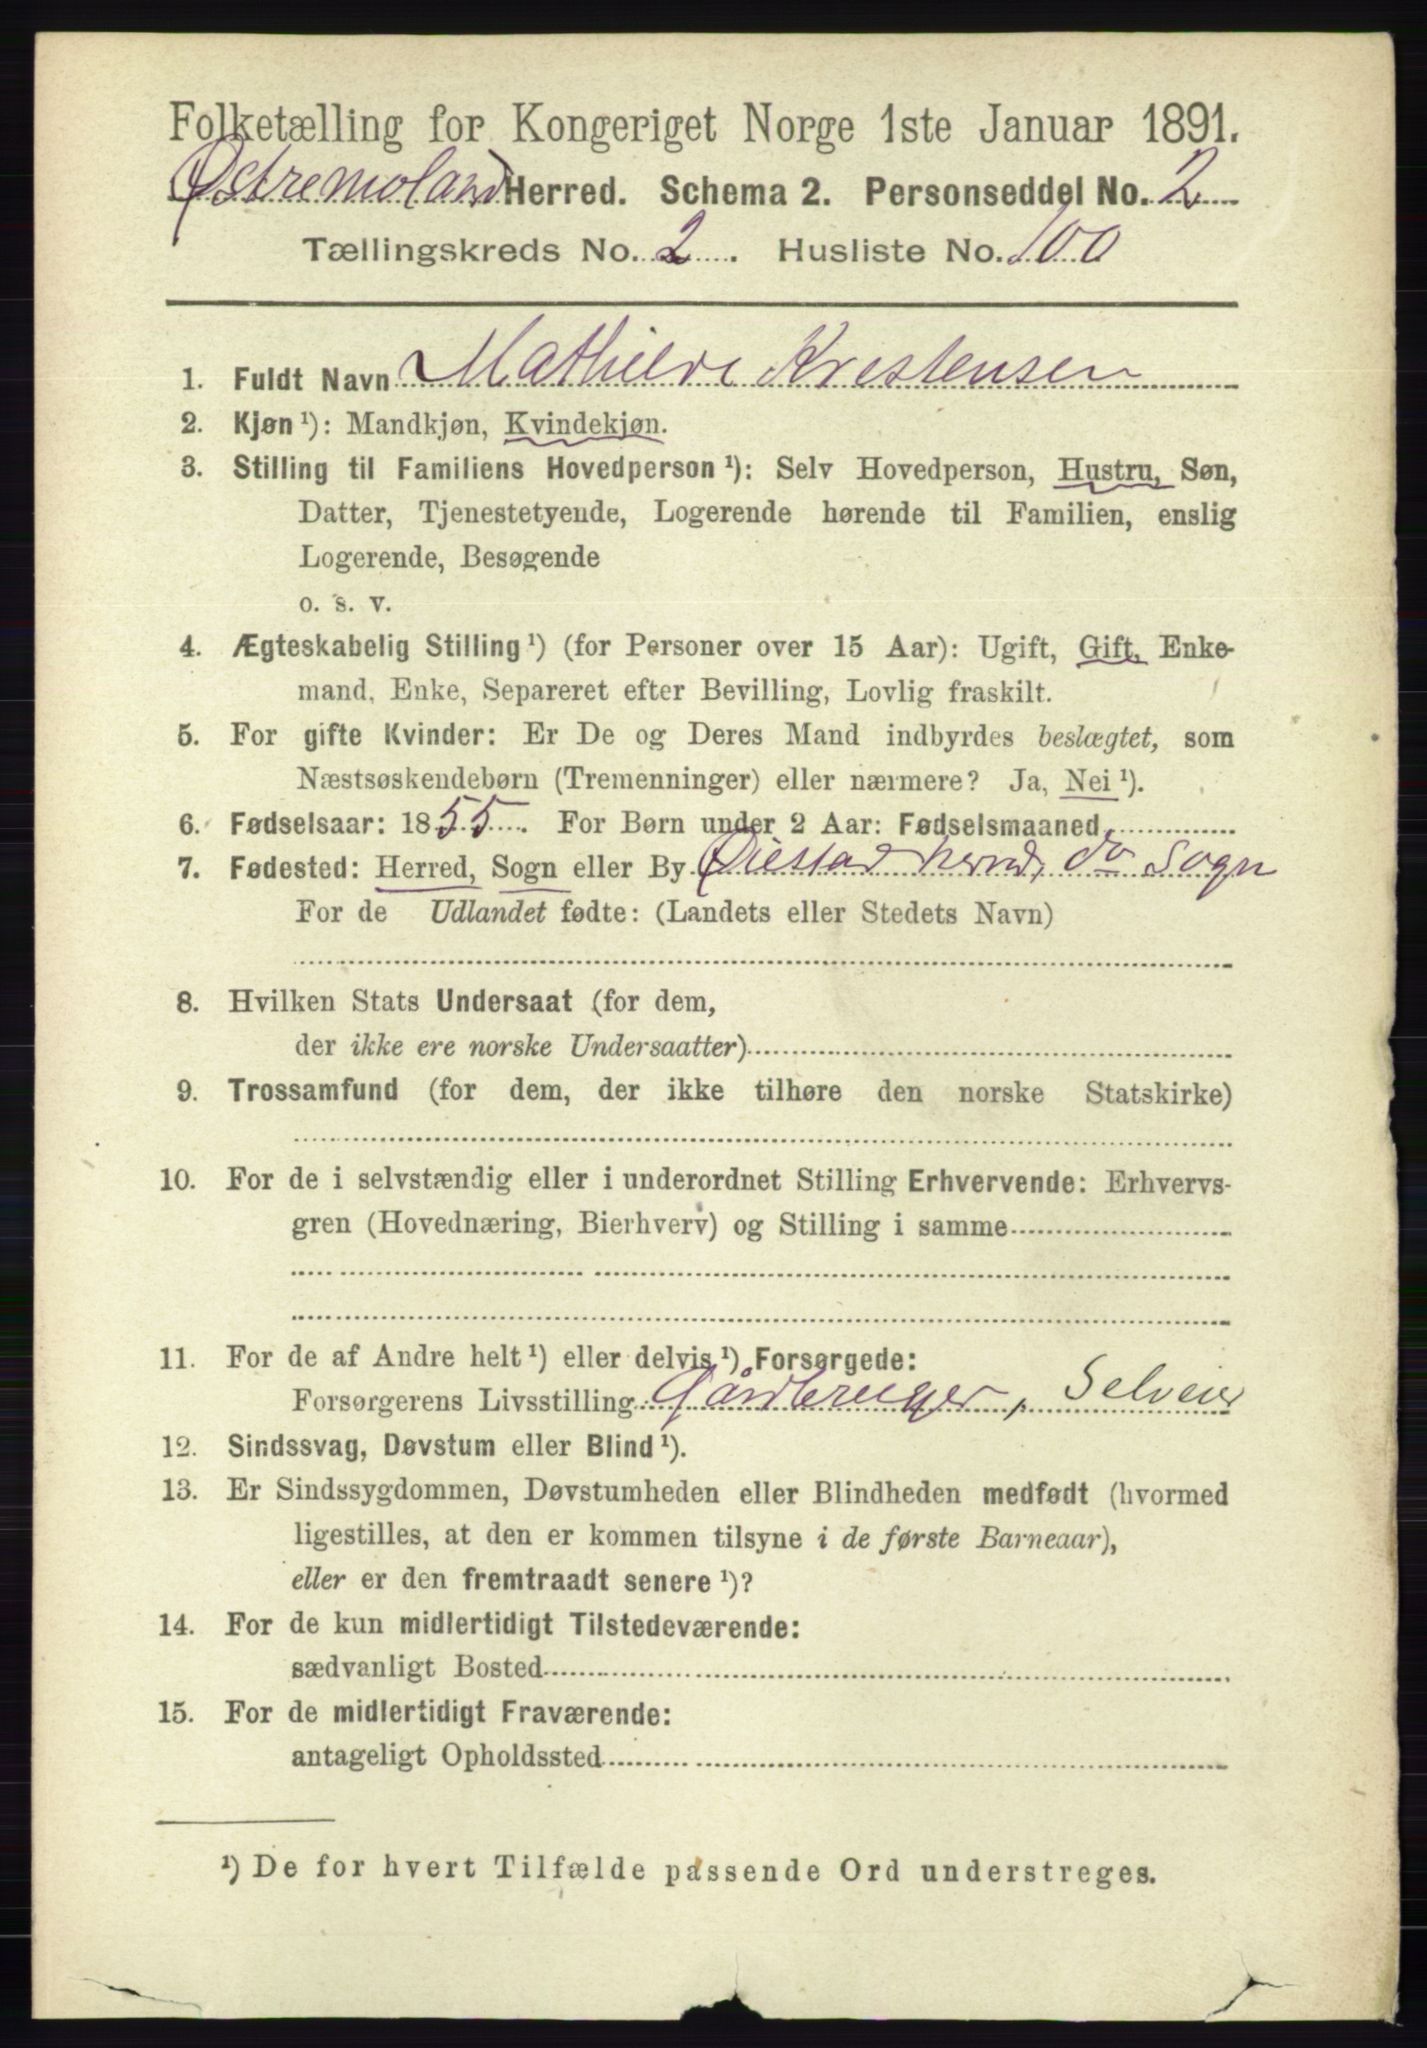 Folketælling for Kongeriget Norge 1ste Januar 1891.
Østremoland Herred. Schema 2. Personseddel No. 2
Tællingskreds No. 2. Husliste No. 100
1. Fuldt Navn Mathilde Kristensen
2. Kjøn ¹): Mandkjøn, Kvindekjøn.
3. Stilling til Familiens Hovedperson ¹): Selv Hovedperson, Hustru, Søn,
Datter, Tjenestetyende, Logerende hørende til Familien, enslig
Logerende, Besøgende
o. s. v.
4. Ægteskabelig Stilling ¹) (for Personer over 15 Aar): Ugift, Gift, Enke-
mand, Enke, Separeret efter Bevilling, Lovlig fraskilt.
5. For gifte Kvinder: Er De og Deres Mand indbyrdes beslægtet, som
Næstsøskendebørn (Tremenninger) eller nærmere? Ja, Nei ¹).
6. Fødselsaar: 1855. For Børn under 2 Aar: Fødselsmaaned
7. Fødested: Herred, Sogn eller By Øiestad herred, do Sogn
For de Udlandet fødte: (Landets eller Stedets Navn)
8. Hvilken Stats Undersaat (for dem,
der ikke ere norske Undersaatter)
9. Trossamfund (for dem, der ikke tilhøre den norske Statskirke)
10. For de i selvstændig eller i underordnet Stilling Erhvervende: Erhvervs-
gren (Hovednæring, Bierhverv) og Stilling i samme
11. For de af Andre helt ¹) eller delvis ¹) Forsørgede:
Forsørgerens Livsstilling Gårdbruger, Selveier
12. Sindssvag, Døvstum eller Blind ¹).
13. Er Sindssygdommen, Døvstumheden eller Blindheden medfødt (hvormed
ligestilles, at den er kommen tilsyne i de første Barneaar),
eller er den fremtraadt senere ¹)?
14. For de kun midlertidigt Tilstedeværende:
sædvanligt Bosted
15. For de midlertidigt Fraværende:
antageligt Opholdssted
¹) De for hvert Tilfælde passende Ord understreges.